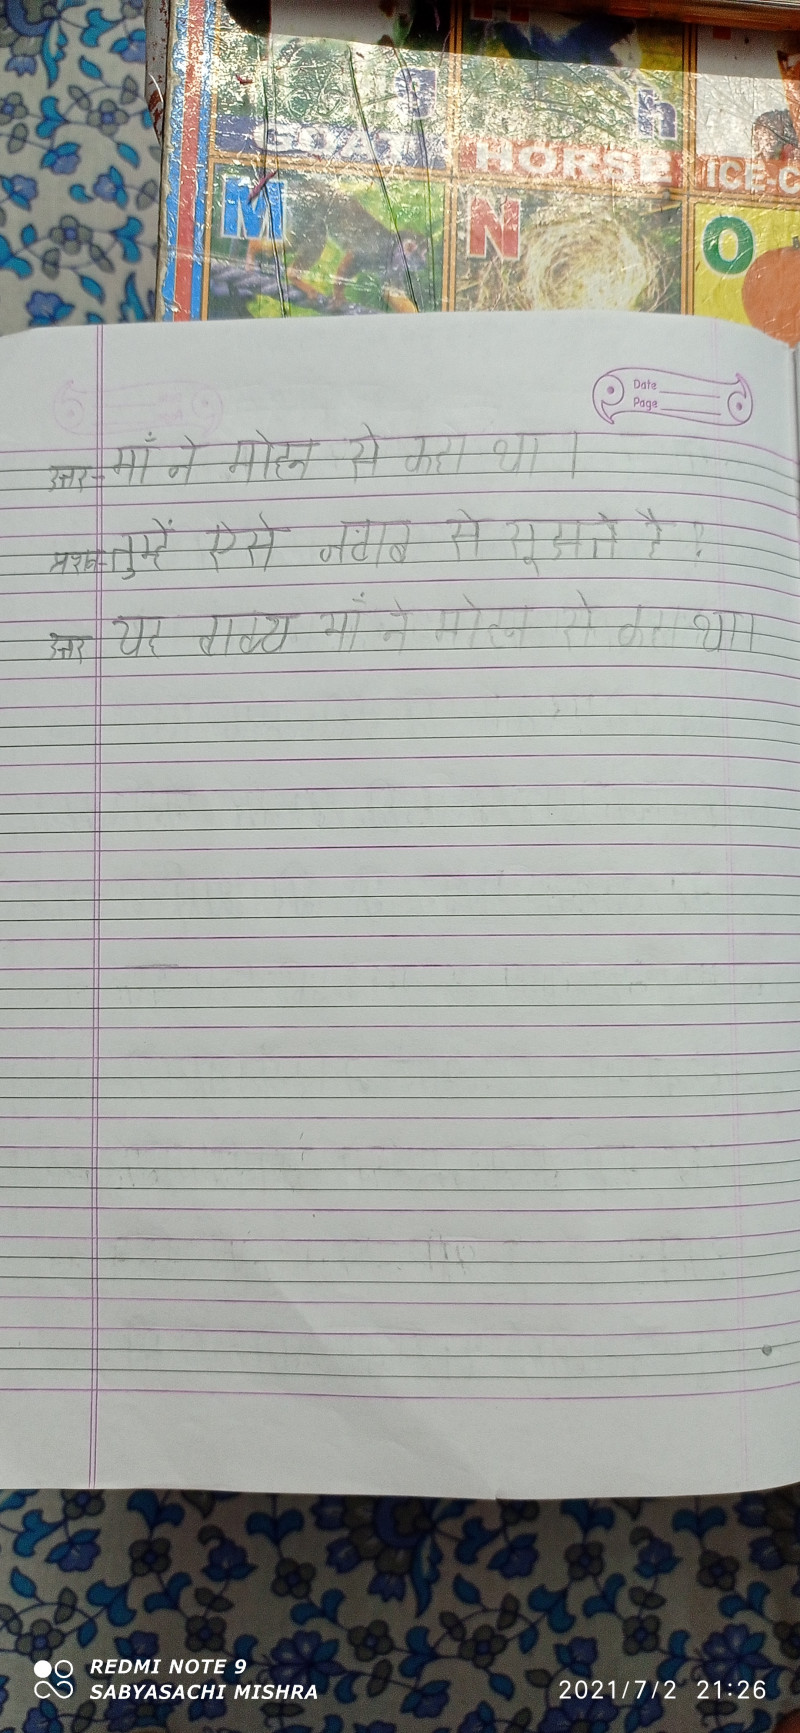 g
h
GOAT
HORSE
ICE-C
M
N
O
Date
Page
उत्तर- माँ ने मोहन से कहा था।
प्रश्न- तुम्हें ऐसे जवाब से सूझते है?
उत्तर यह वाक्य माँ ने मोहन से कहा था।
REDMI NOTE 9
SABYASACHI MISHRA
2021/7/2 21:26